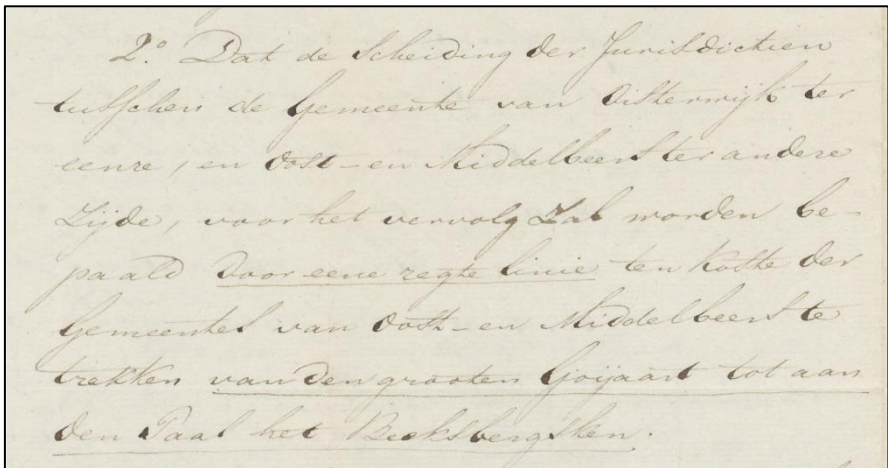 2.° Dat de Scheiding der Jurisdictien
tusschen de Gemeente van Oisterwijk ter
eenre, en Oost- en Middelbeers ter andere
Zijde, voor het vervolg Zal worden be-
paald door eene regte linie ten Koste der
Gemeentes van Oost- en Middelbeers te
trekken van den grooten Goijaart tot aan
den Paal het Beeksbergsken.